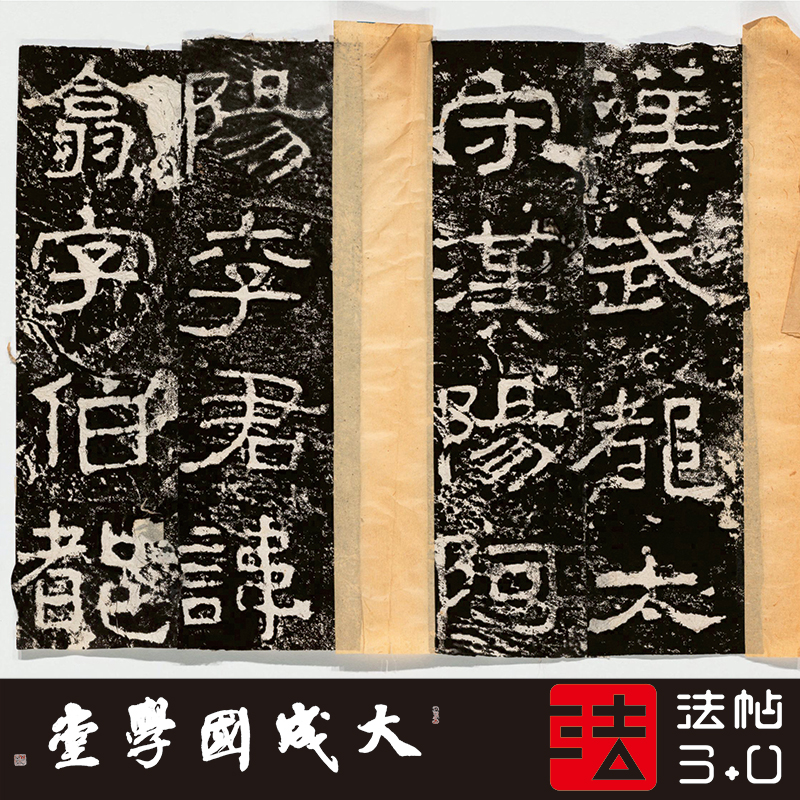 漢武都太
守漢陽阿
陽李君諱
翕字伯都
大成國學堂
法
法帖
3.0